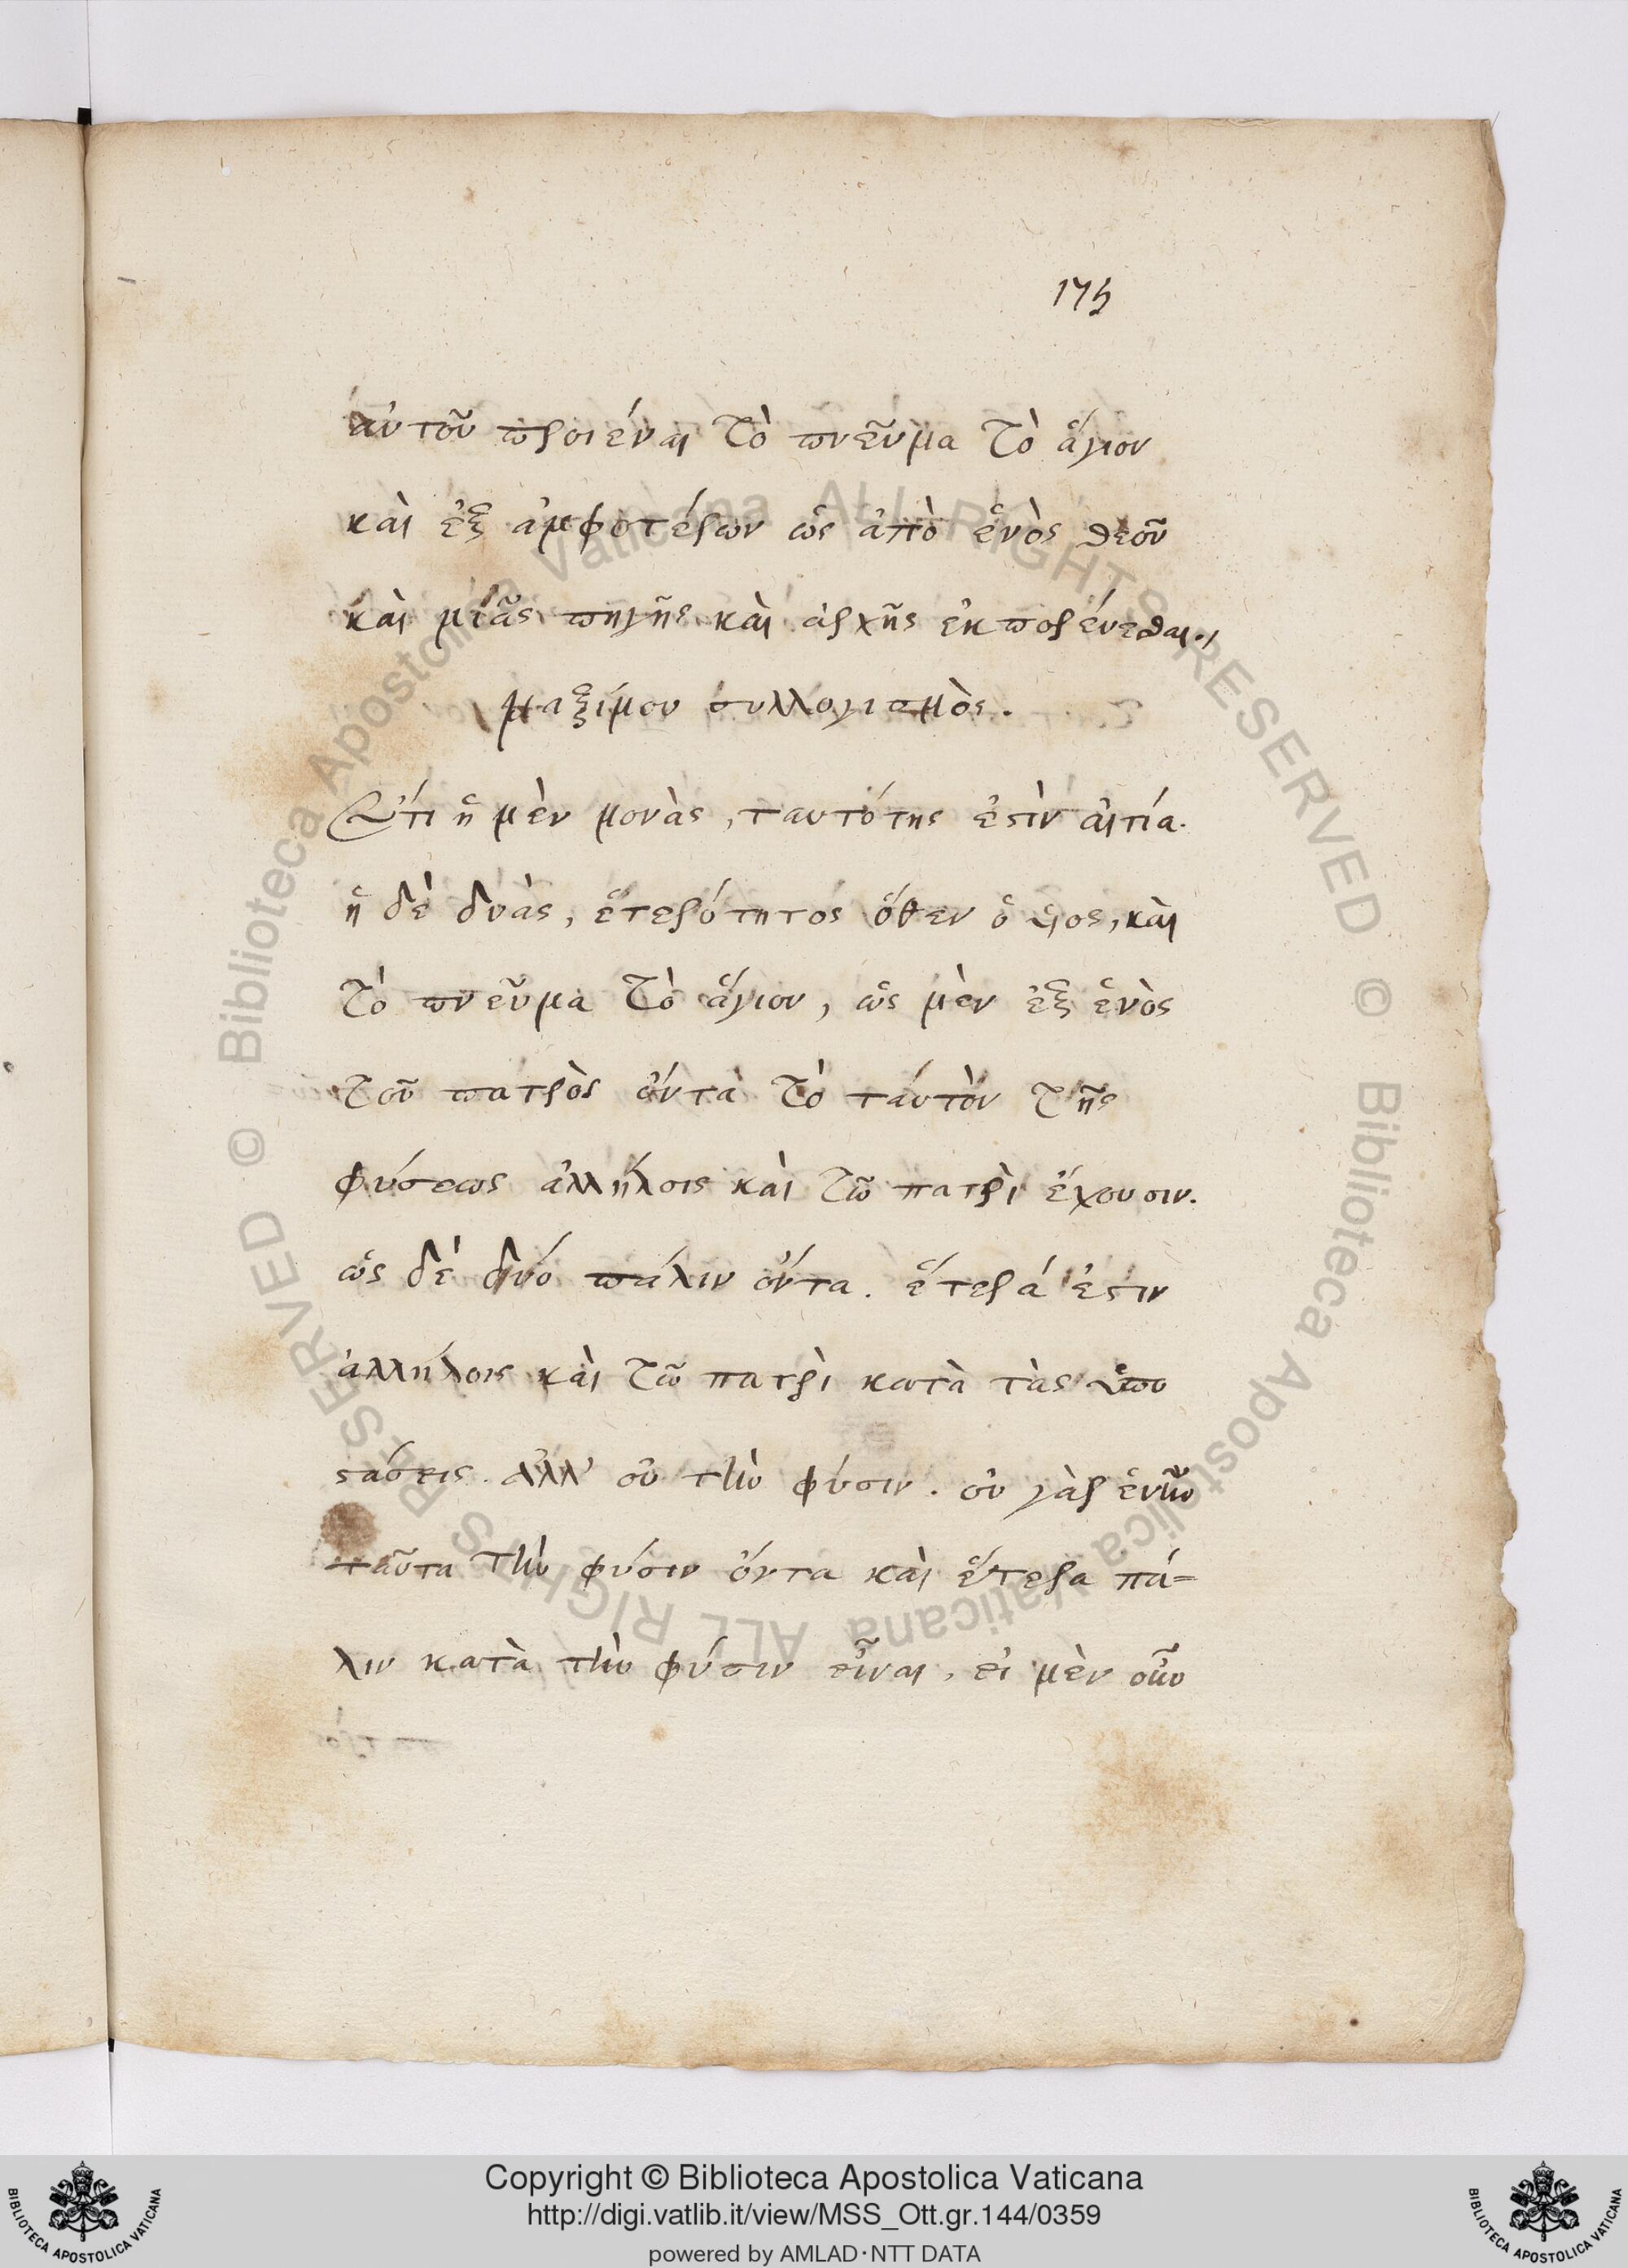 175
αὐτοῦ προιέναι τὸ πνεῦμα τὸ ἅγιον
καὶ ἐξ ἀμφοτέρων ὡς ἀπὸ ἑνὸς θεοῦ
καὶ μιᾶς πηγῆς καὶ ἀρχῆς ἐκπορεύεσθαι.
Μαξίμου συλλογισμὸς.
Ὅτι ἡ μὲν μονὰς, ταυτότης ἐστὶν αἰτία.
ἡ δὲ δυὰς, ἑτερότητος ὅθεν ὁ ὑιος, καὶ
τὸ πνεῦμα τὸ ἅγιον, ὡς μὲν ἐξ ἑνὸς
τοῦ πατρὸς ὄντα τὸ τάυτὸν τῆς
φύσεως ἀλλήλοις καὶ τῶ πατρὶ ἔχουσιν.
ὡς δὲ δυό πάλιν ὄντα. ἕτερά ἐστιν
ἀλλήλοις καὶ τῶ πατρὶ κατὰ τὰς ὑπο
στάσεις. ἀλλ' οὐ τὴν φύσιν. οὐ γὰρ ἐνῆν
ταῦτα τὴν φύσιν ὄντα καὶ ἕτερα πά=
λιν κατὰ τὴν φύσιν εἶναι, εἰ μὲν οὖν
© Biblioteca Apostolica Vaticana ALL RIGHTS RESERVED © Biblioteca Apostolica Vaticana ALL RIGHTS RESERVED
Copyright © Biblioteca Apostolica Vaticana
http://digi.vatlib.it/view/MSS_Ott.gr.144/0359
powered by AMLAD·NTT DATA
BIBLIOTECA APOSTOLICA VATICANA
BIBLIOTECA APOSTOLICA VATICANA